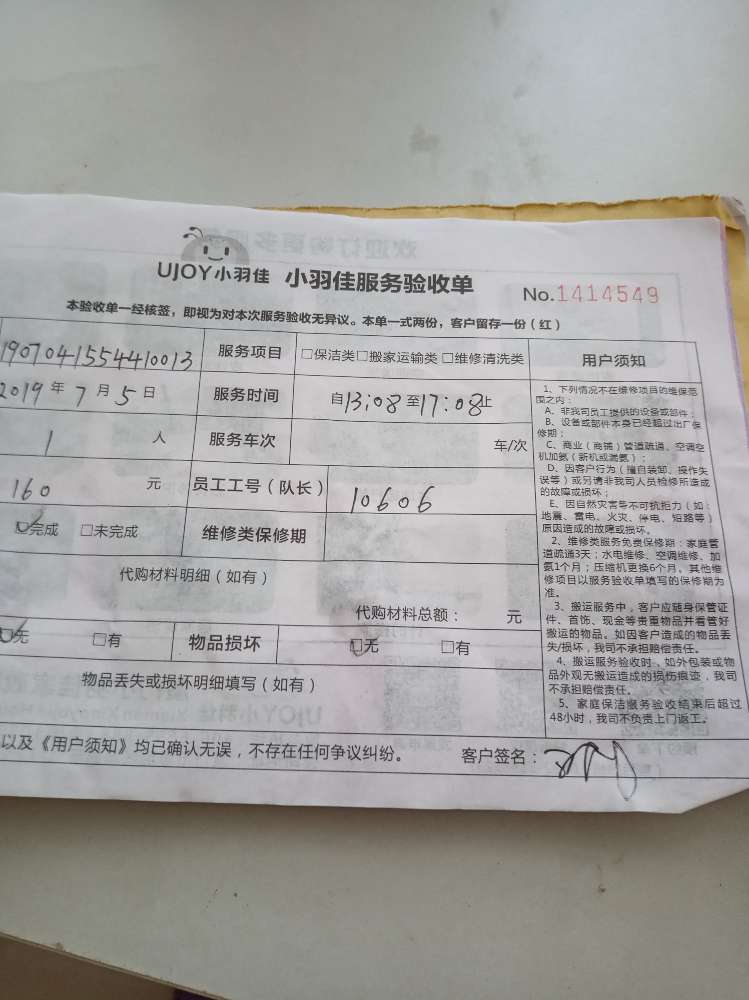 UJOY小羽佳 小羽佳服务验收单 No.1414549
本验收单一经核签，即视为对本次服务验收无异议。本单一式两份，客户留存一份（红）
1907041554410013 服务项目 □保洁类□搬家运输类□维修清洗类 用户须知
2019年7月5日 服务时间 自13:08至17:08止
1 人 服务车次 车/次
160 元 员工工号（队长） 10606
□完成 □未完成 维修类保修期
代购材料明细（如有）
代购材料总额： 元
□无 □有 物品损坏 □无 □有
物品丢失或损坏明细填写（如有）
以及《用户须知》均已确认无误，不存在任何争议纠纷。 客户签名：
1、下列情况不在维修项目的维保范
围之内：
A、非我司员工提供的设备或部件；
B、设备或部件本身已经超过出厂保
修期；
C、商业（商铺）管道疏通、空调空
机加氨（新机或漏氨）；
D、因客户行为（擅自装卸、操作失
误等）或另请非我司人员检修所造成
的故障或损坏；
E、因自然灾害等不可抗拒力（如：
地震、雷电、火灾、停电、短路等）
原因造成的故障或损坏。
2、维修类服务免费保修期：家庭管
道疏通3天；水电维修、空调维修、加
氨1个月；压缩机更换6个月。其他维
修项目以服务验收单填写的保修期为
准。
3、搬运服务中，客户应随身保管证
件、首饰、现金等贵重物品并看管好
搬运的物品。如因客户造成的物品丢
失/损坏，我司不承担赔偿责任。
4、搬运服务验收时，如外包装或物
品外观无搬运造成的损伤痕迹，我司
不承担赔偿责任。
5、家庭保洁服务验收结束后超过
48小时，我司不负责上门返工。